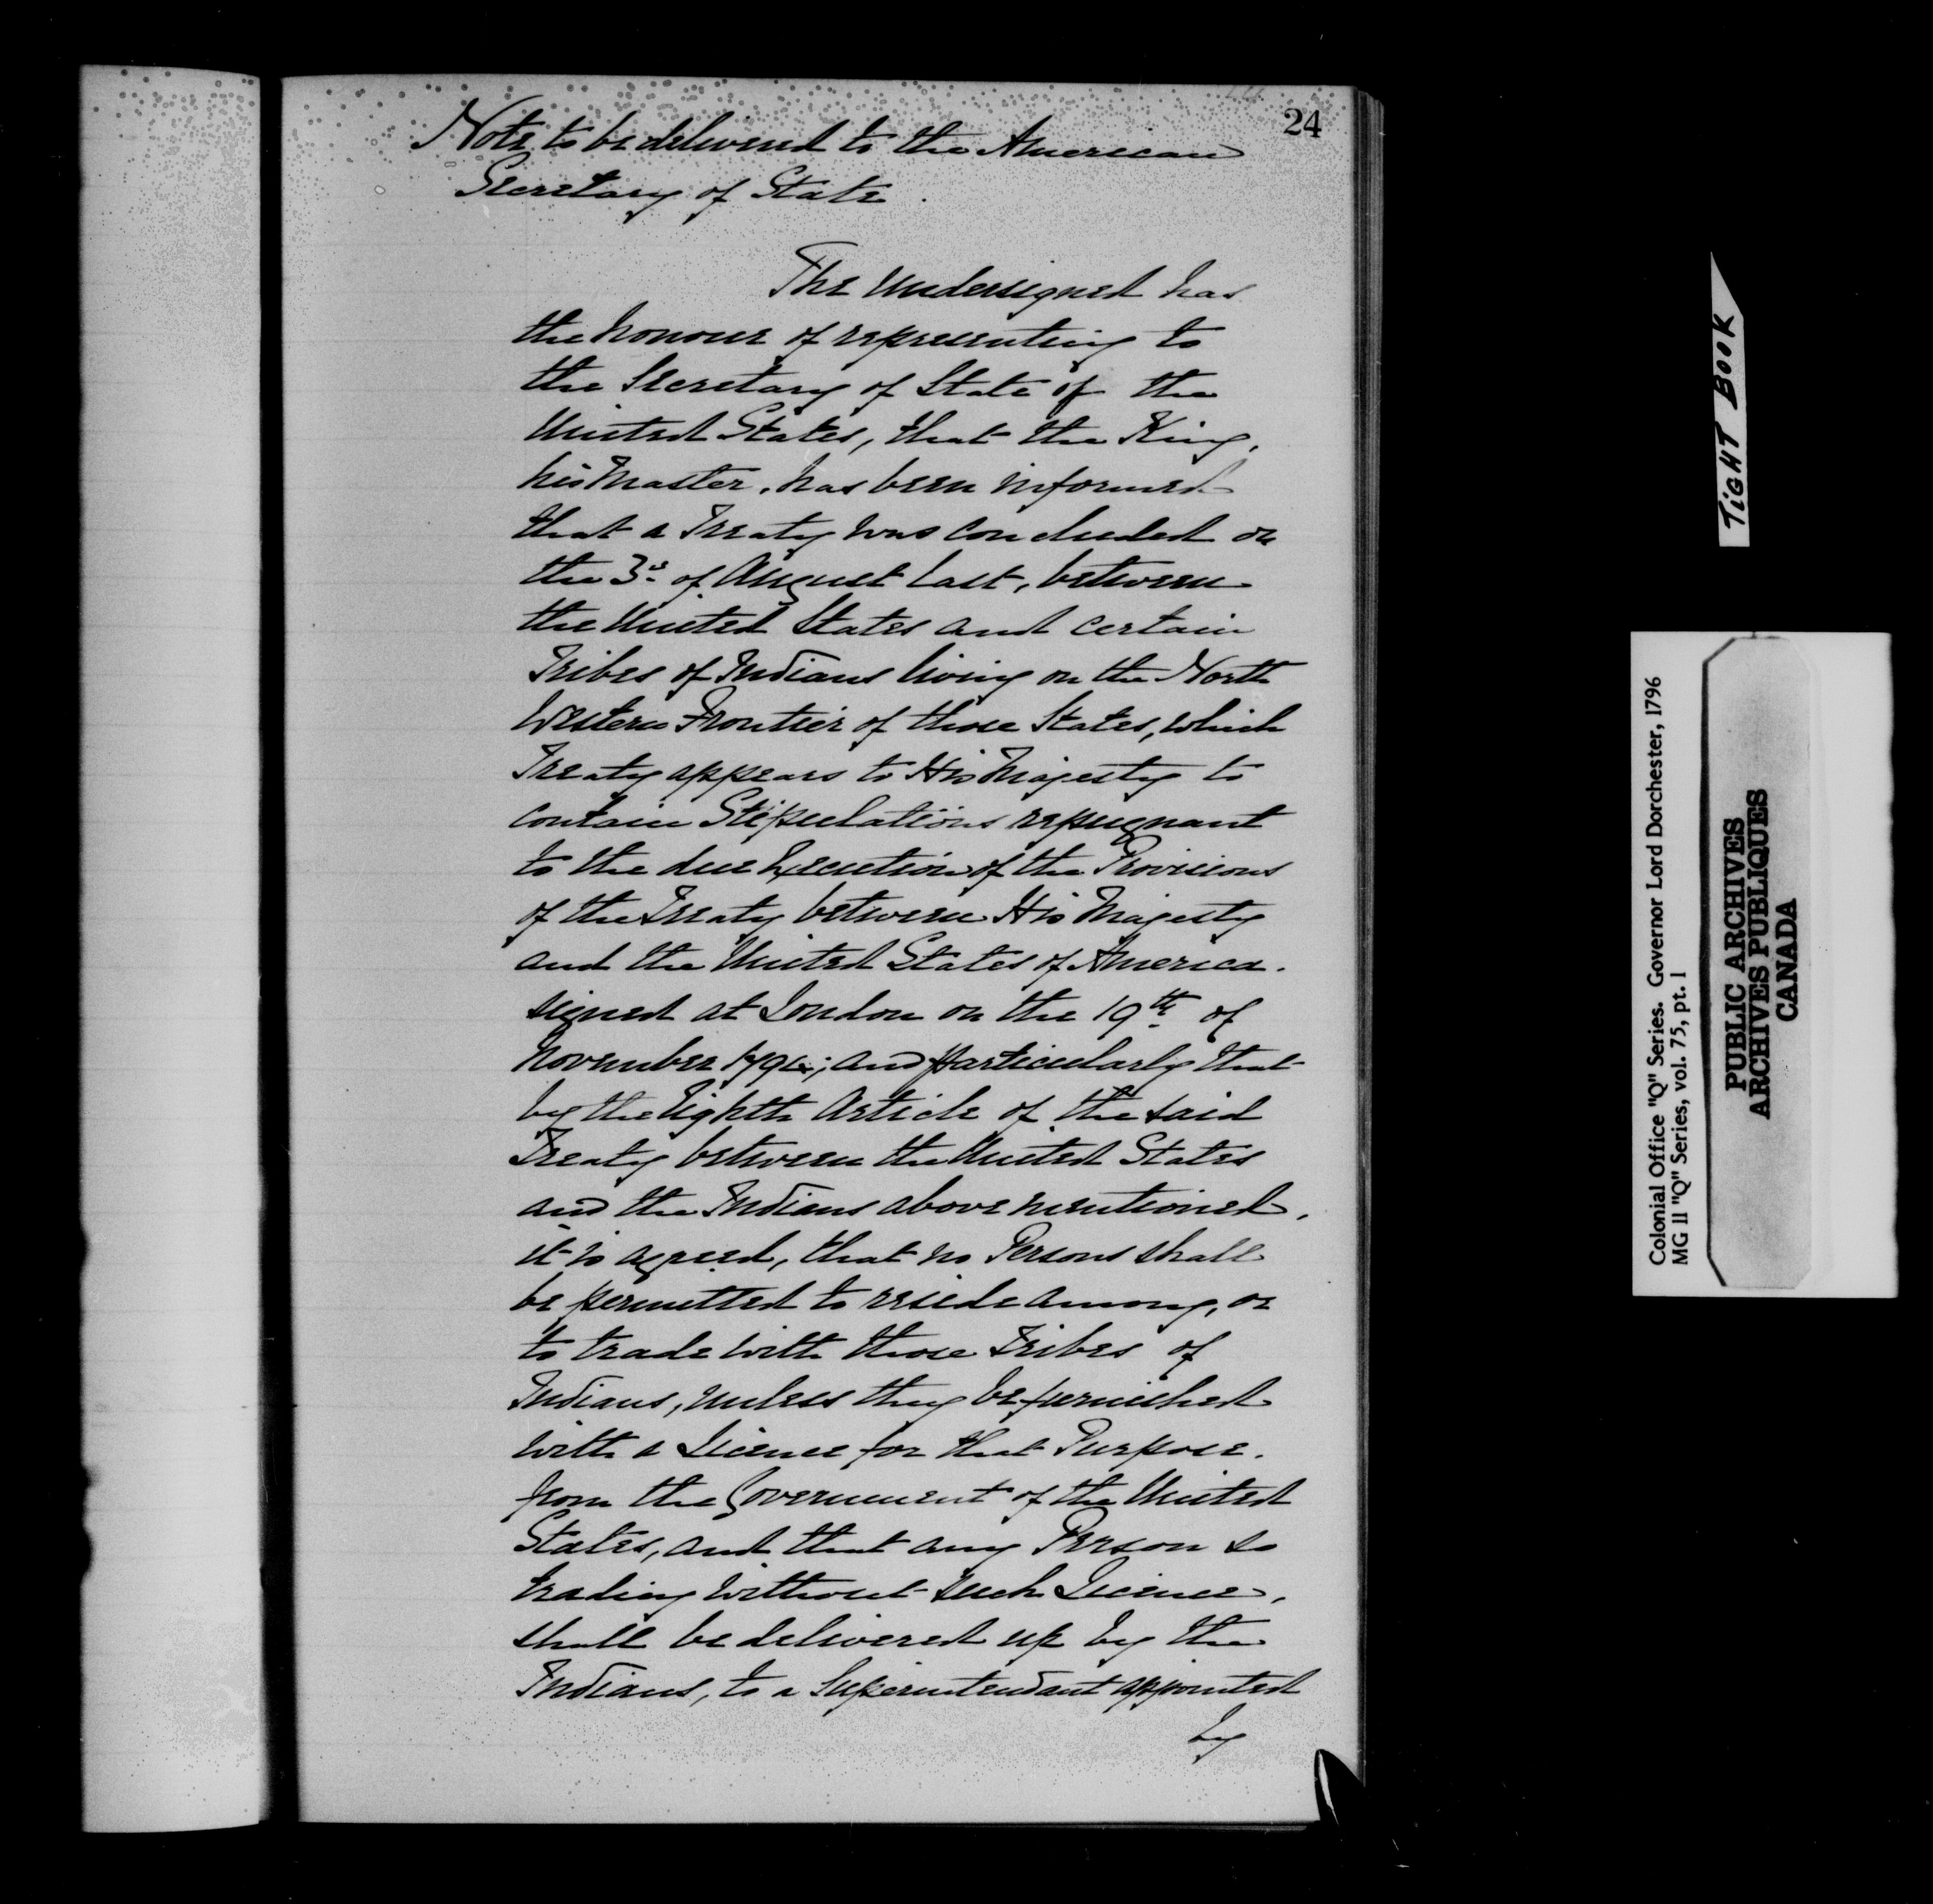 24
Note to be delivered to the American
Secretary of State.
The Undersigned has
the honour of representing to
the Secretary of State of the
United States, that the King,
his Master, has been informed
that a Treaty was concluded on
the 3d. of August last, between
the United States and certain
Tribes of Indians living on the North
Western Frontier of those States, which
Treaty appears to His Majesty to
contain Stipulations repugnant
to the due Execution of the Provisions
of the Treaty between His Majesty
and the United States of America.
signed at London on the 19th of
November 1794; and particularly that
by the Eighth Article of the said
Treaty between the United States
and the Indians above mentioned,
it is agreed, that no Persons shall
be permitted to reside among, or
to trade with those Tribes of
Indians, unless they be furnished
with a Licence for that Purpose.
from the Government of the United
States, and that any Person so
trading without such Licence,
shall be delivered up by the
Indians, to a Superintendant appointed
by
TIGHT BOOK
Colonial Office "Q" Series. Governor Lord Dorchester, 1796
MG 11 "Q" Series, vol. 75, pt. 1
PUBLIC ARCHIVES
ARCHIVES PUBLIQUES
CANADA